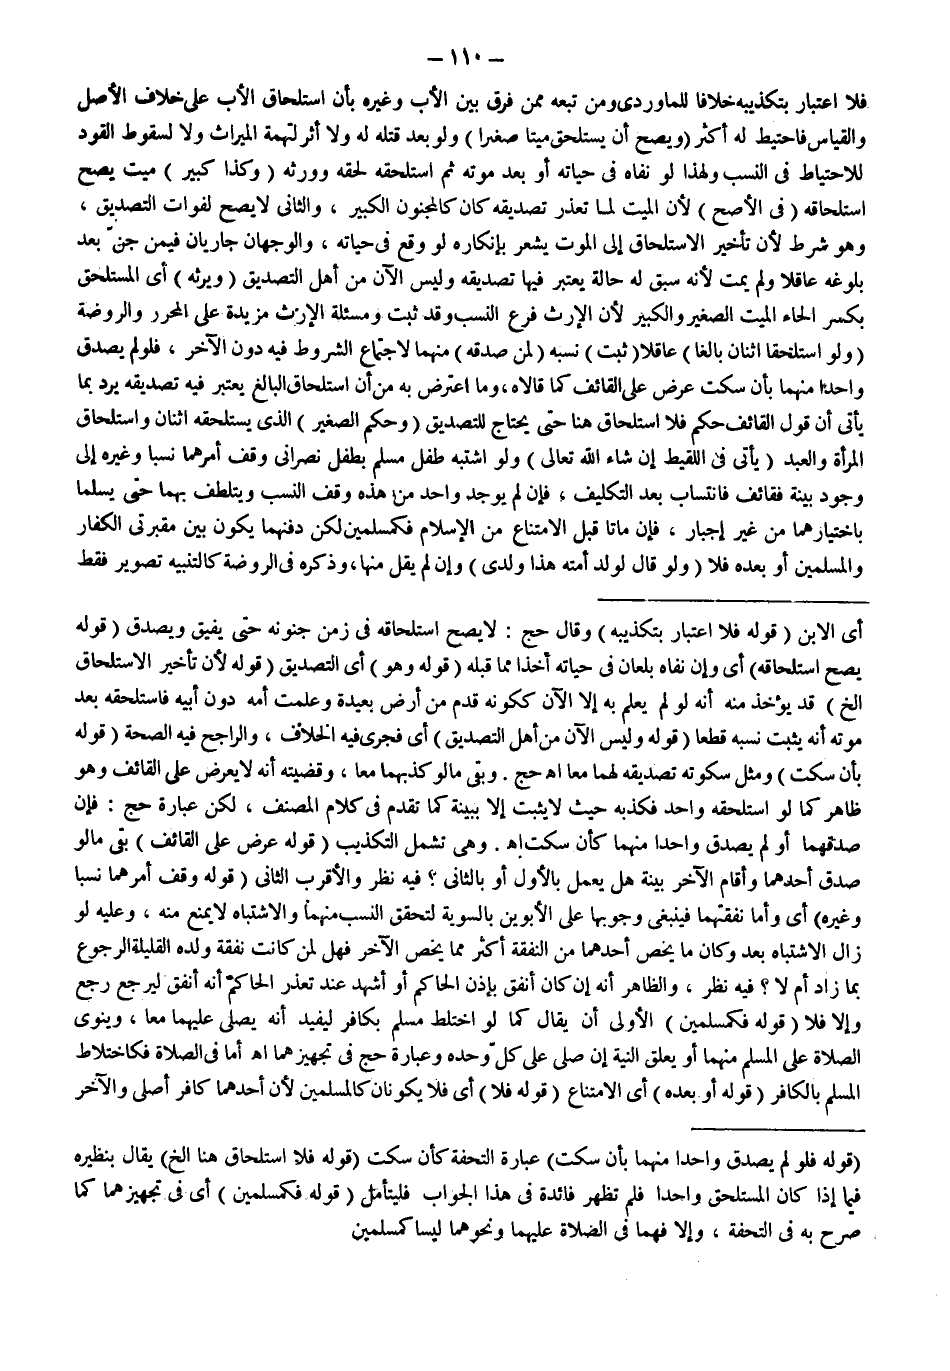 – ١١٠ –
فلا اعتبار بتكذيبه خلافا للماوردى ومن تبعه ممن فرق بين الأب وغيره بأن استلحاق الأب على خلاف الأصل
والقياس فاحتيط له أكثر ( ويصح أن يستلحق ميتا صغيرا ) ولو بعد قتله له ولا أثر لتهمة الميراث ولا لسقوط القود
للاحتياط فى النسب ولهذا لو نفاه فى حياته أو بعد موته ثم استلحقه لحقه وورثه ( وكذا كبير ) ميت يصح
استلحاقه ( فى الأصح ) لأن الميت لما تعذر تصديقه كان كالمجنون الكبير ، والثانى لايصح لفوات التصديق ،
وهو شرط لأن تأخير الاستلحاق إلى الموت يشعر بإنكاره لو وقع فى حياته ، والوجهان جاريان فيمن جنّ بعد
بلوغه عاقلا ولم يمت لأنه سبق له حالة يعتبر فيها تصديقه وليس الآن من أهل التصديق ( ويرثه ) أى المستلحق
بكسر الحاء الميت الصغير والكبير لأن الإرث فرع النسب وقد ثبت ومسئلة الإرث مزيدة على المحرر والروضة
( ولو استلحقا اثنان بالغا ) عاقلا ( ثبت ) نسبه ( لمن صدقه ) منهما لاجتماع الشروط فيه دون الآخر ، فلو لم يصدق
واحدا منهما بأن سكت عرض على القائف كما قالاه ، وما اعترض به من أن استلحاق البالغ يعتبر فيه تصديقه يرد بما
يأتى أن قول القائف حكم فلا استلحاق هنا حتى يحتاج للتصديق ( وحكم الصغير ) الذى يستلحقه اثنان واستلحاق
المرأة والعبد ( يأتى فى اللقيط إن شاء الله تعالى ) ولو اشتبه طفل مسلم بطفل نصرانى وقف أمرهما نسبا وغيره إلى
وجود بينة فقائف فانتساب بعد التكليف ، فإن لم يوجد واحد من هذه وقف النسب ويتلطف بهما حتى يسلما
باختيارهما من غير إجبار ، فإن ماتا قبل الامتناع من الإسلام فكمسلمين لكن دفنهما يكون بين مقبرتى الكفار
والمسلمين أو بعده فلا ( ولو قال لولد أمته هذا ولدى ) وإن لم يقل منها ، وذكره فى الروضة كالتنبيه تصوير فقط
أى الابن ( قوله فلا اعتبار بتكذيبه ) وقال حج : لايصح استلحاقه فى زمن جنونه حتى يفيق ويصدق ( قوله
يصح استلحاقه ) أى وإن نفاه بلعان فى حياته أخذا مما قبله ( قوله وهو ) أى التصديق ( قوله لأن تأخير الاستلحاق
الخ ) قد يؤخذ منه أنه لو لم يعلم به إلا الآن ككونه قدم من أرض بعيدة وعلمت أمه دون أبيه فاستلحقه بعد
موته أنه يثبت نسبه قطعا ( قوله وليس الآن من أهل التصديق ) أى فجرى فيه الخلاف ، والراجح فيه الصحة ( قوله
بأن سكت ) ومثل سكوته تصديقه لهما معا اه حج . وبقى مالو كذبهما معا ، وقضيته أنه لايعرض على القائف وهو
ظاهر كما لو استلحقه واحد فكذبه حيث لايثبت إلا ببينة كما تقدم فى كلام المصنف ، لكن عبارة حج : فإن
صدقهما أو لم يصدق واحدا منهما كأن سكت اه . وهى تشمل التكذيب ( قوله عرض على القائف ) بقى مالو
صدق أحدهما وأقام الآخر بينة هل يعمل بالأول أو بالثانى ؟ فيه نظر والأقرب الثانى ( قوله وقف أمرهما نسبا
وغيره ) أى وأما نفقتهما فينبغى وجوبها على الأبوين بالسوية لتحقق النسب منهما والاشتباه لايمنع منه ، وعليه لو
زال الاشتباه بعد وكان ما يخص أحدهما من النفقة أكثر مما يخص الآخر فهل لمن كانت نفقة ولده القليلة الرجوع
بما زاد أم لا ؟ فيه نظر ، والظاهر أنه إن كان أنفق بإذن الحاكم أو أشهد عند تعذر الحاكم أنه أنفق ليرجع رجع
وإلا فلا ( قوله فكمسلمين ) الأولى أن يقال كما لو اختلط مسلم بكافر ليفيد أنه يصلى عليهما معا ، وينوى
الصلاة على المسلم منهما أو يعلق النية إن صلى على كلّ وحده وعبارة حج فى تجهيزهما اه أما فى الصلاة فكاختلاط
المسلم بالكافر ( قوله أو بعده ) أى الامتناع ( قوله فلا ) أى فلا يكونان كالمسلمين لأن أحدهما كافر أصلى والآخر
(قوله فلو لم يصدق واحدا منهما بأن سكت) عبارة التحفة كأن سكت (قوله فلا استلحاق هنا الخ) يقال بنظيره
فيما إذا كان المستلحق واحدا فلم تظهر فائدة فى هذا الجواب فليتأمل ( قوله فكمسلمين ) أى فى تجهيزهما كما
صرح به فى التحفة ، وإلا فهما فى الصلاة عليهما ونحوهما ليسا كمسلمين